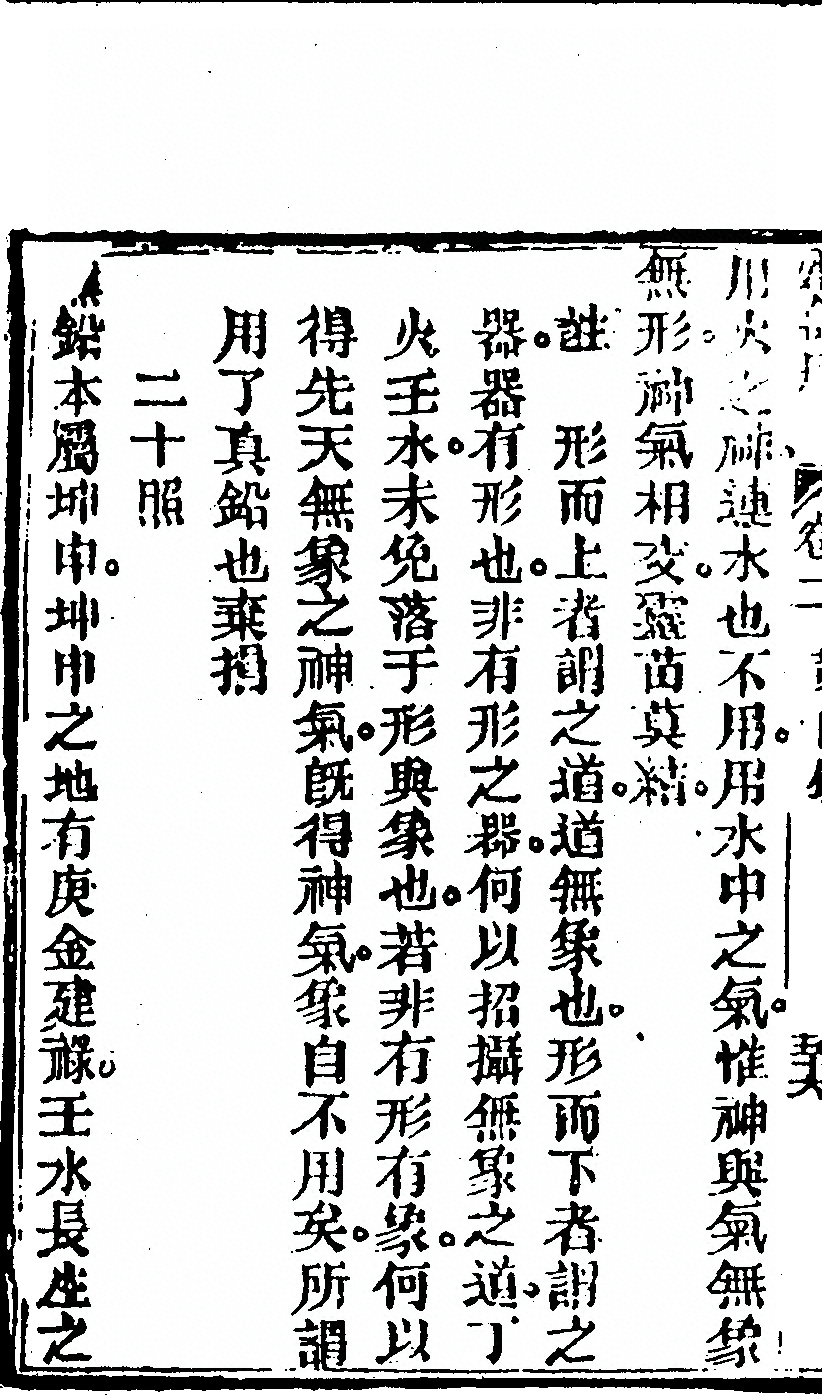 卷二
用火之神連水也不用。用水中之氣。惟神與氣無象
無形。神氣相交。靈苗莫結。
註 形而上者謂之道。道無象也。形而下者謂之
器。器有形也。非有形之器。何以招攝無象之道。丁
火壬水。未免落于形與象也。若非有形有象。何以
得先天無象之神氣。既得神氣。象自不用矣。所謂
用了真鉛也棄捐
二十照
鉛本屬坤申。坤申之地有庚金建祿。壬水長生之